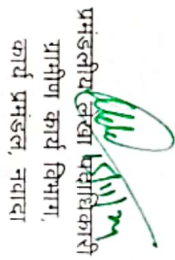 प्रमंडलीय लेखा पदाधिकारी
ग्रामीण कार्य विभाग,
कार्य प्रमंडल, नवादा